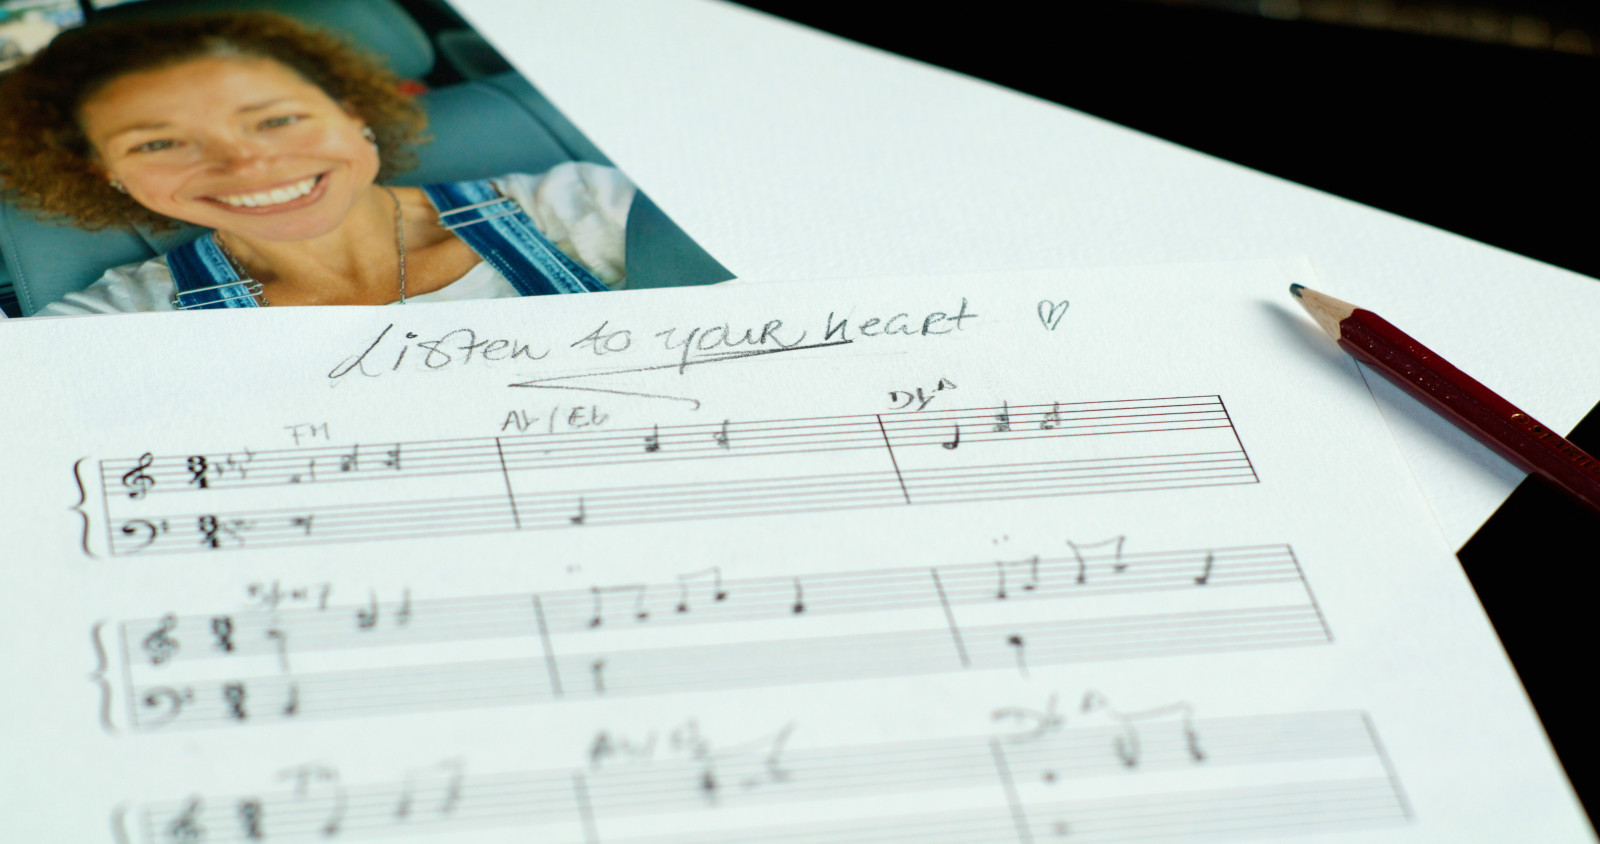 Listen to your heart ♡
Fm Ab/Eb DbΔ
Ab/Eb DbΔ